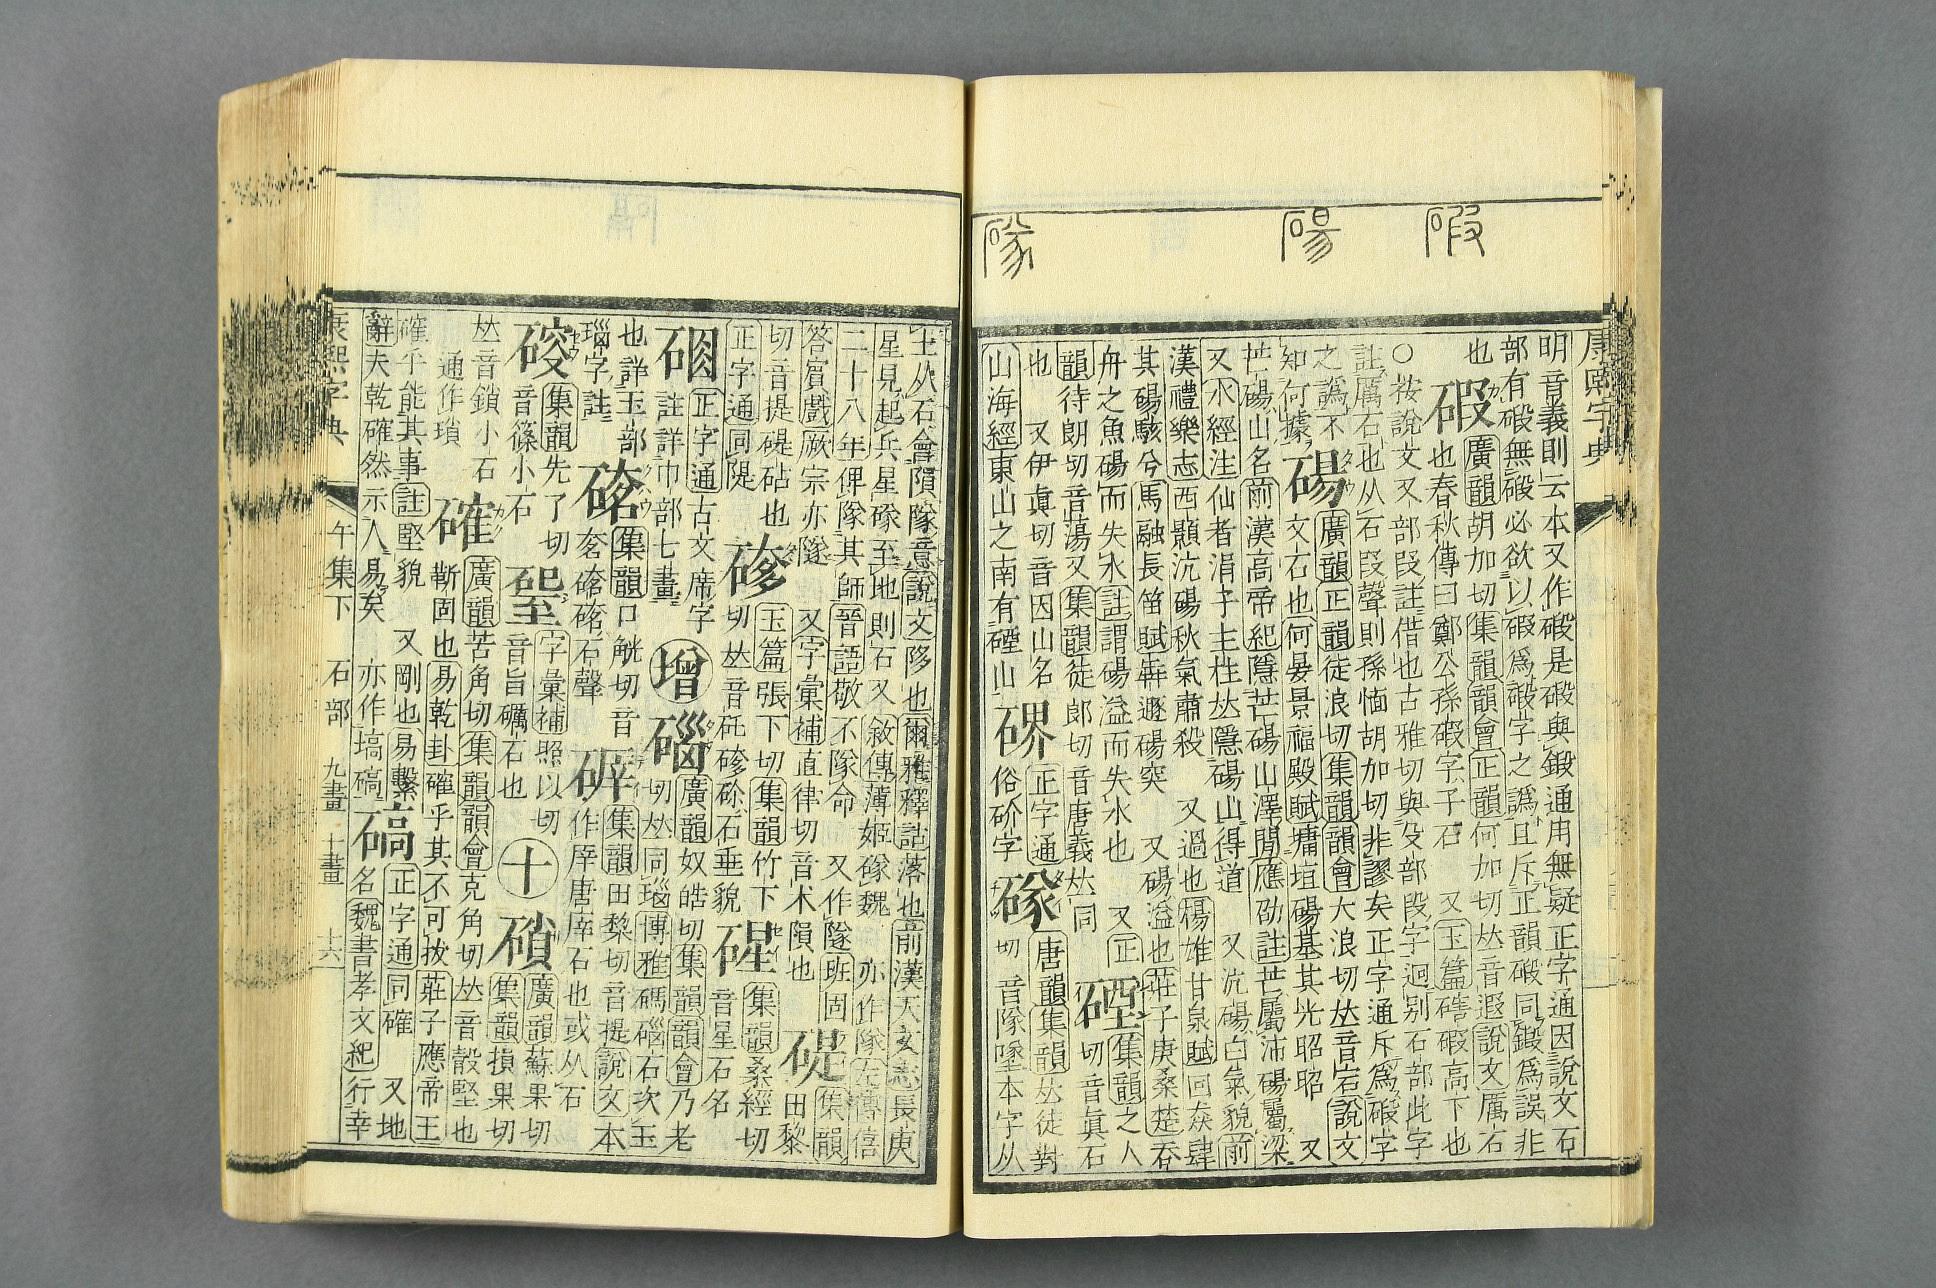 碬
碭
䃍
康熙字典
明音義則云本又作碬是碬與鍛通用無疑正字通因說文石
部有碬無碫必欲以碬爲碫字之譌且斥正韻碬同鍛爲誤非
也
碬
廣韻胡加切集韻韻會正韻何加切𠀤音遐說文厲石
也春秋傳曰鄭公孫碬字子石 又玉篇碏碬高下也
○按說文又部叚註借也古雅切與殳部段字迥别石部此字
註厲石也从石叚聲則孫愐胡加切非謬矣正字通斥爲碫字
之譌不知何據
碭
廣韻正韻徒浪切集韻韻會大浪切𠀤音宕說文
文石也何晏景福殿賦墉垣碭基其光昭昭 又
芒碭山名前漢高帝紀隱芒碭山澤閒應劭註芒屬沛碭屬梁
又水經注仙者涓子主柱𠀤隱碭山得道 又沆碭白氣貌前
漢禮樂志西顥沆碭秋氣肅殺 又過也楊雄甘泉賦回猋肆
其碭駭兮馬融長笛賦犇遯碭突 又碭溢也莊子庚桑楚吞
舟之魚碭而失水註謂碭溢而失水也 又正
韻待朗切音蕩又集韻徒郎切音唐義𠀤同
硾
集韻之人切音眞石
也 又伊眞切音因山名
山海經東山之南有硾山
界
正字通俗砎字
䃍
唐韻集韻𠀤徒對切
音隊墜本字从
土从石會隕隊意說文陊也爾雅釋詁落也前漢天文志長庚
星見起兵星䃍至地則石又敘傳薄姬䃍魏 亦作隊左傳僖
二十八年俾隊其師晉語敬不隊命 又作隧班固
答賓戲厥宗亦隧 又字彙補直律切音术隕也
碮
集韻田黎
切音提碮砧也
正字通同隄
㡯
玉篇張下切集韻竹下
切𠀤音䂳硳硢石垂貌
碅
正字通古文席字
註詳巾部七畫
增
碯
廣韻奴皓切集韻韻會乃老
切𠀤同瑙博雅碼碯石次玉
也詳玉部
瑙字註
集韻口觥切音
硿𥓋石聲
集韻田黎切音提說文本
作厗唐厗石也或从石
集韻先了切
音篠小石
字彙補照以切
音旨礪石也
十
𥔲
廣韻蘇果切
集韻損果切
𠀤音鎖小石
通作瑣
確
廣韻苦角切集韻韻會克角切𠀤音殼堅也
靳固也易乾卦確乎其不可拔莊子應帝王
確乎能其事註堅貌 又剛也易繫
辭夫乾確然示人易矣 亦作塙碻
碻
正字通同確 又地
名魏書孝文紀行幸
康熙字典
午集下 石部 九畫 十畫
十六